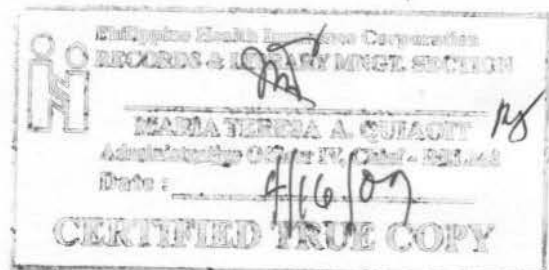 Philippine Health Insurance Corporation
RECORDS & LIBRARY MNGT. SECTION
MARIA TERESA A. QUIAOIT
Administrative Officer IV, Chief -
Date : 4/16/07
CERTIFIED TRUE COPY